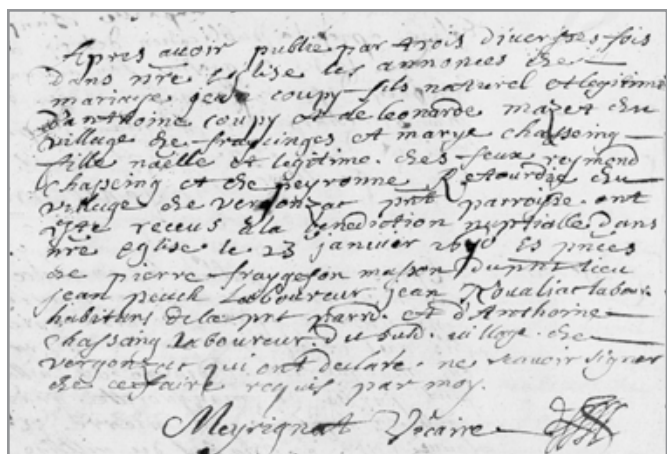 Apres avoir publié par trois diverses fois
dans nre Eglise les annonces de
mariage jean coupy fils naturel et legitime
d'anthoine coupy et de leonarde mazet du
village de fraycinges et marye chasseing
fille naelle et legitime des feux reymond
chasseing et de peyronne Retourdre du
village de vergonzac pnt parroisse ont
este receus a la benediction nuptialle dans
nre eglise le 23 janvier és pnces
de pierre maison du pnt lieu
jean peuch laboureur jean Roualiac labour
habitans de la pnt parre et d'Anthoine
Chassang laboureur du sud. village de
vergonzac qui ont declare ne scavoir signer
de ce faire requis par moy.
Meyrignat Vicaire